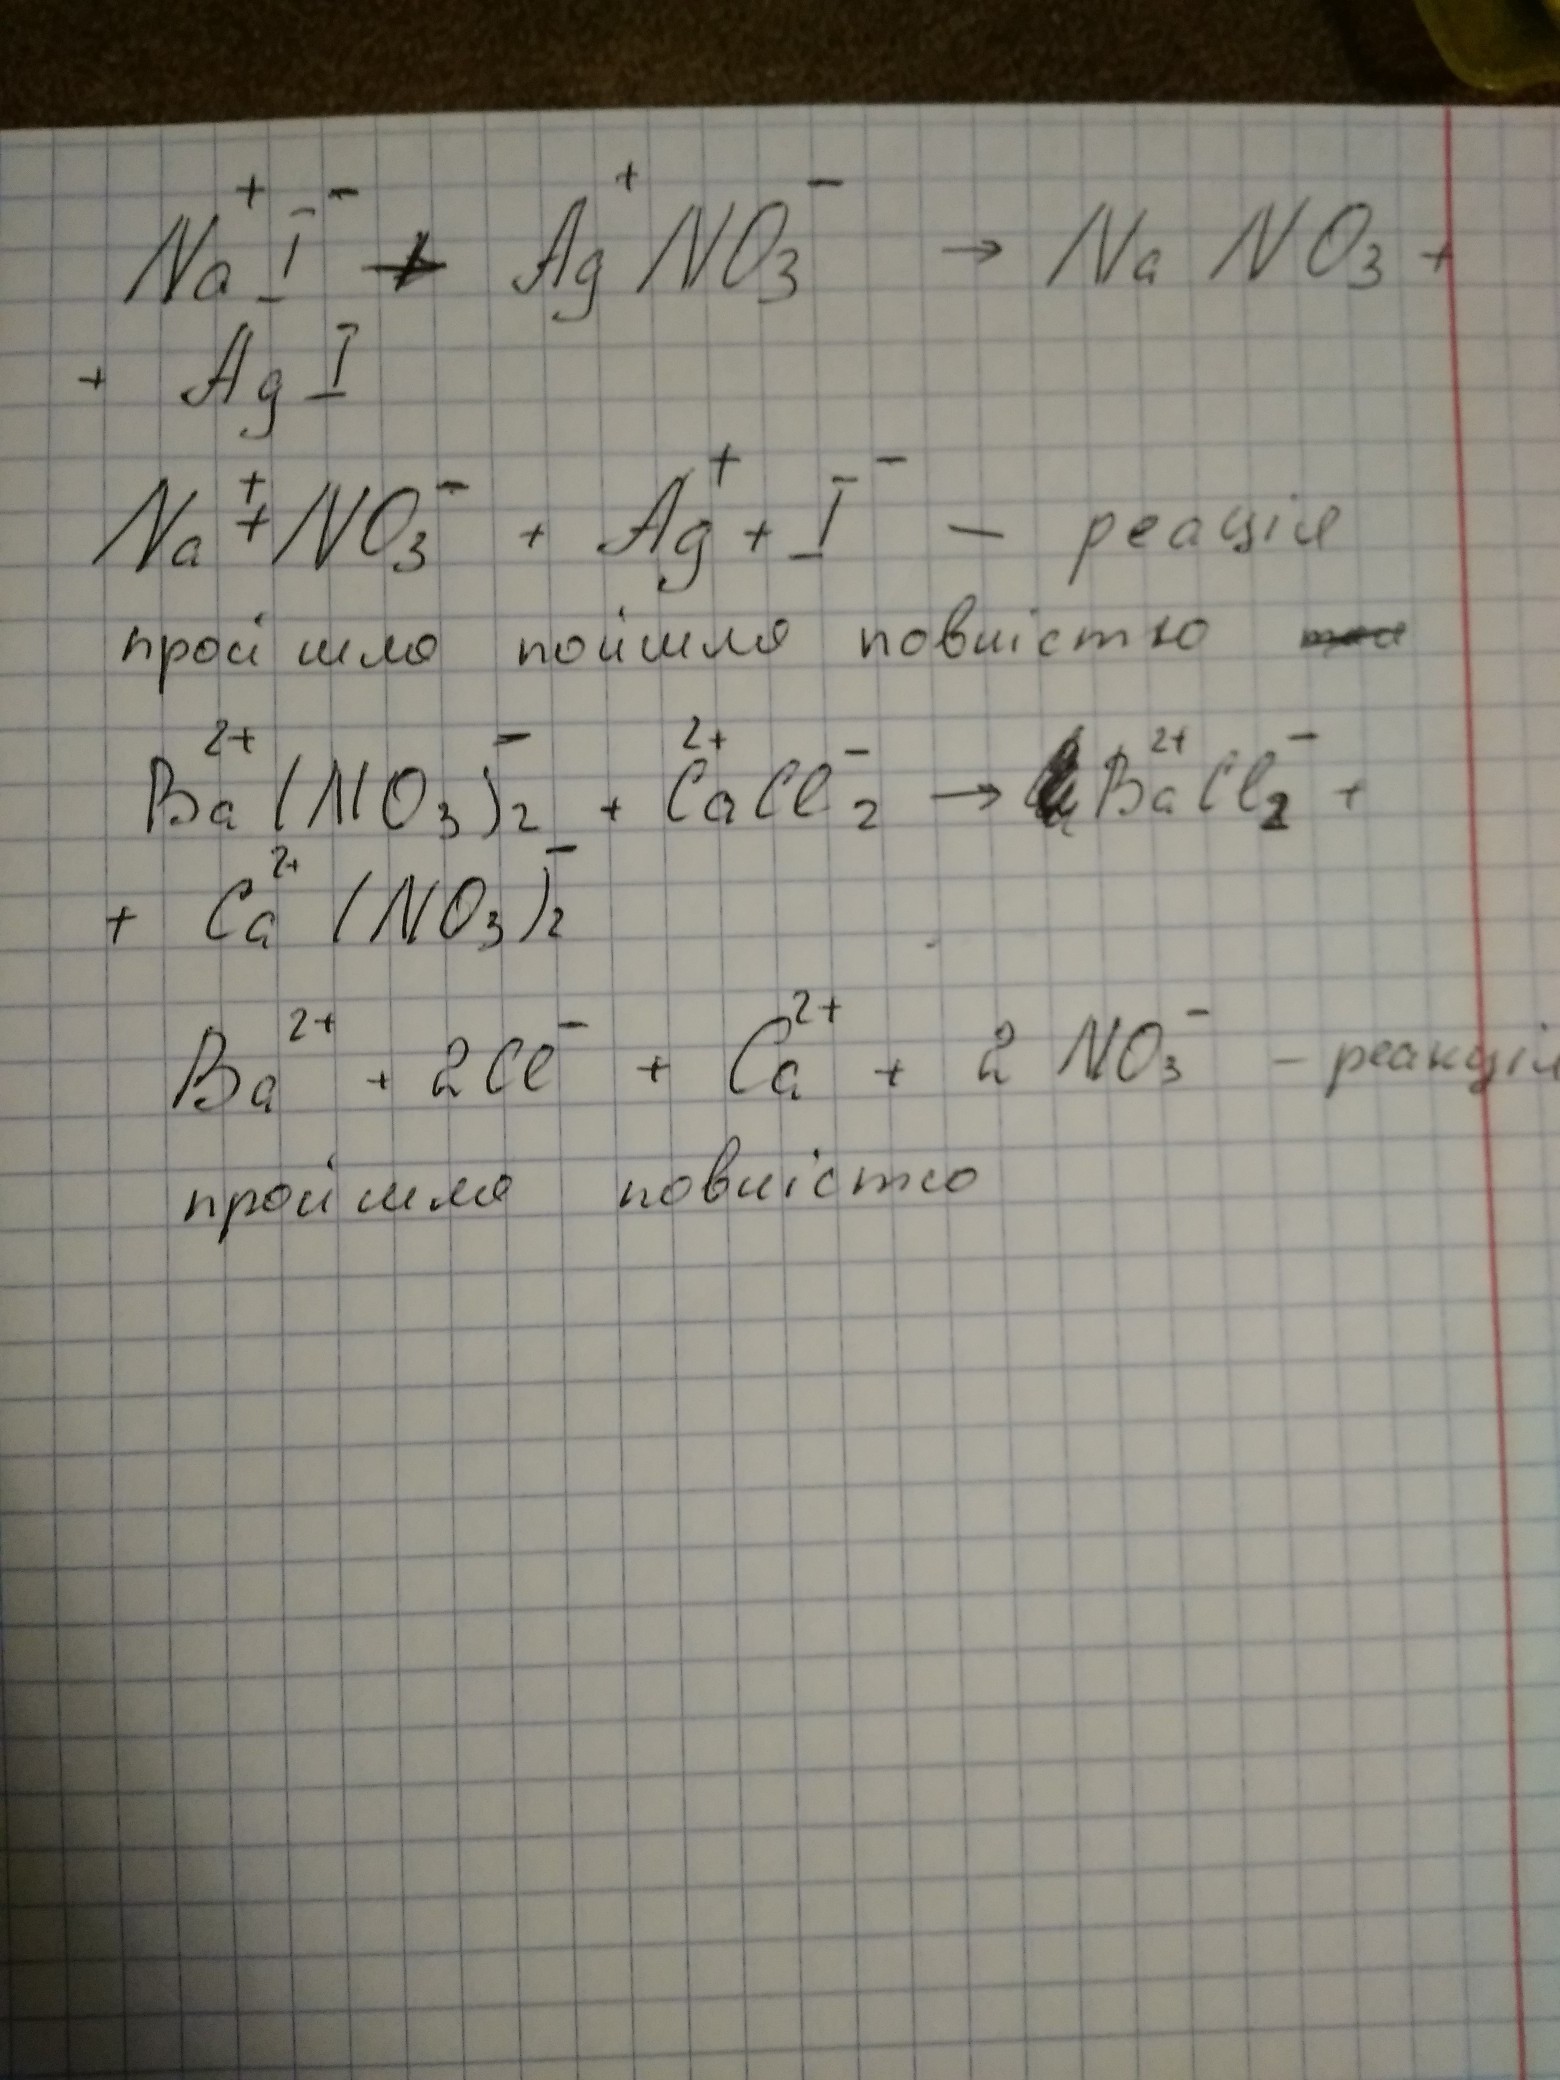 Na⁺I⁻ + Ag⁺NO₃⁻ → NaNO₃ +
+ AgI
Na⁺ + NO₃⁻ + Ag⁺ + I⁻ – реація
пройшла пойшла повністю
Ba²⁺(NO₃)₂⁻ + Ca²⁺Cl₂⁻ → Ba²⁺Cl₂⁻ +
+ Ca²⁺(NO₃)₂⁻
Ba²⁺ + 2Cl⁻ + Ca²⁺ + 2NO₃⁻ – реакція
пройшла повністю